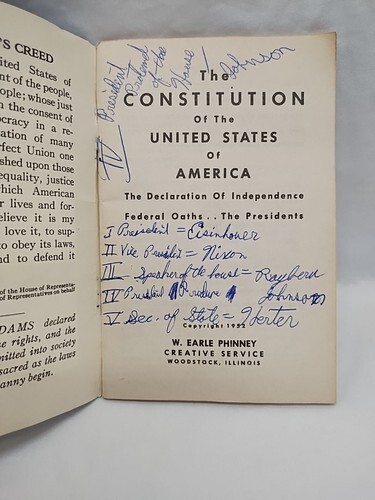 'S CREED
ited States of
nt of the people,
ople; whose just
n the consent of
ocracy in a re-
ation of many
rfect Union one
shed upon those
equality, justice
which American
r lives and for-
elieve it is my
love it, to sup-
to obey its laws,
nd to defend it
of the House of Representa-
of Representatives on behalf
DAMS declared
e rights, and the
mitted into society
sacred as the laws
anny begin.
IV President
of the
House
Johnson
The
CONSTITUTION
Of The
UNITED STATES
Of
AMERICA
The Declaration Of Independence
Federal Oaths . . The Presidents
I President = Eisenhower
II Vice President = Nixon
III - Speaker of the House = Rayburn
IV President Johnson
V Sec. of State = Herter
Copyright 1952
W. EARLE PHINNEY
CREATIVE SERVICE
WOODSTOCK, ILLINOIS